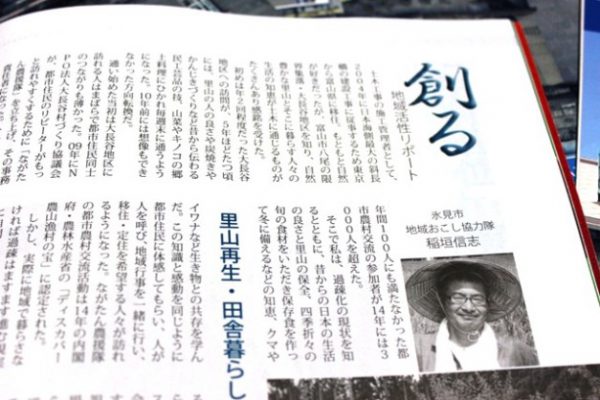 創る
地域活性リポート
氷見市
地域おこし協力隊
稲垣信志
土木工事の施工管理者として、
2004年に日本海側最大の斜長
橋の建設工事に従事するため東京
から富山県に移住。もともと自然
が好きだったが、富山市八尾の限
界集落・大長谷地区を知り、自然
豊かな里山とそこに暮らす人々の
生活の知恵が土木に通じるものが
たくさんあり感銘を受けた。
初めは年2回程度だった大長谷
地区への訪問が、5年ほどたつ頃
には、里山の人の良さや炭焼きや
かんじきづくりなど昔から伝わる
民工芸品の技、山菜やキノコの郷
土料理にひかれ毎週末に通うよう
になった。10年前には想像もでき
なかった方向転換だ。
通い始めた当初は大長谷地区に
訪れる人はまばらで都市住民同士
のつながりも薄かった。09年にN
PO法人大長谷村づくり協議会
が、都市住民のリピーターがもっ
と訪れやすくするために「ながた
ん農援隊」を立ち上げ、その事務
責任者になった。
年間100人にも満たなかった都
市農村交流の参加者が14年には3
000人を超えた。
そこで私は、過疎化の現状を知
るとともに、昔からの日本の生活
の良さと里山の保全、四季折々の
旬の食材をいただき保存食を作っ
て冬に備えるなどの知恵、クマや
イワナなど生き物との共存を学ん
だ。この知識と感動を同じように
都市住民に体感してもらい、人が
人を呼び、地域行事を一緒に行い、
移住・定住を希望する人々が訪れ
るようになった。ながたん農援隊
の都市農村交流活動は14年の内閣
府・農林水産省の「ディスカバー
農山漁村の宝」に認定された。
しかし、実際に地域で暮らさな
ければ過疎はますます進む現実
里山再生・田舎暮らし